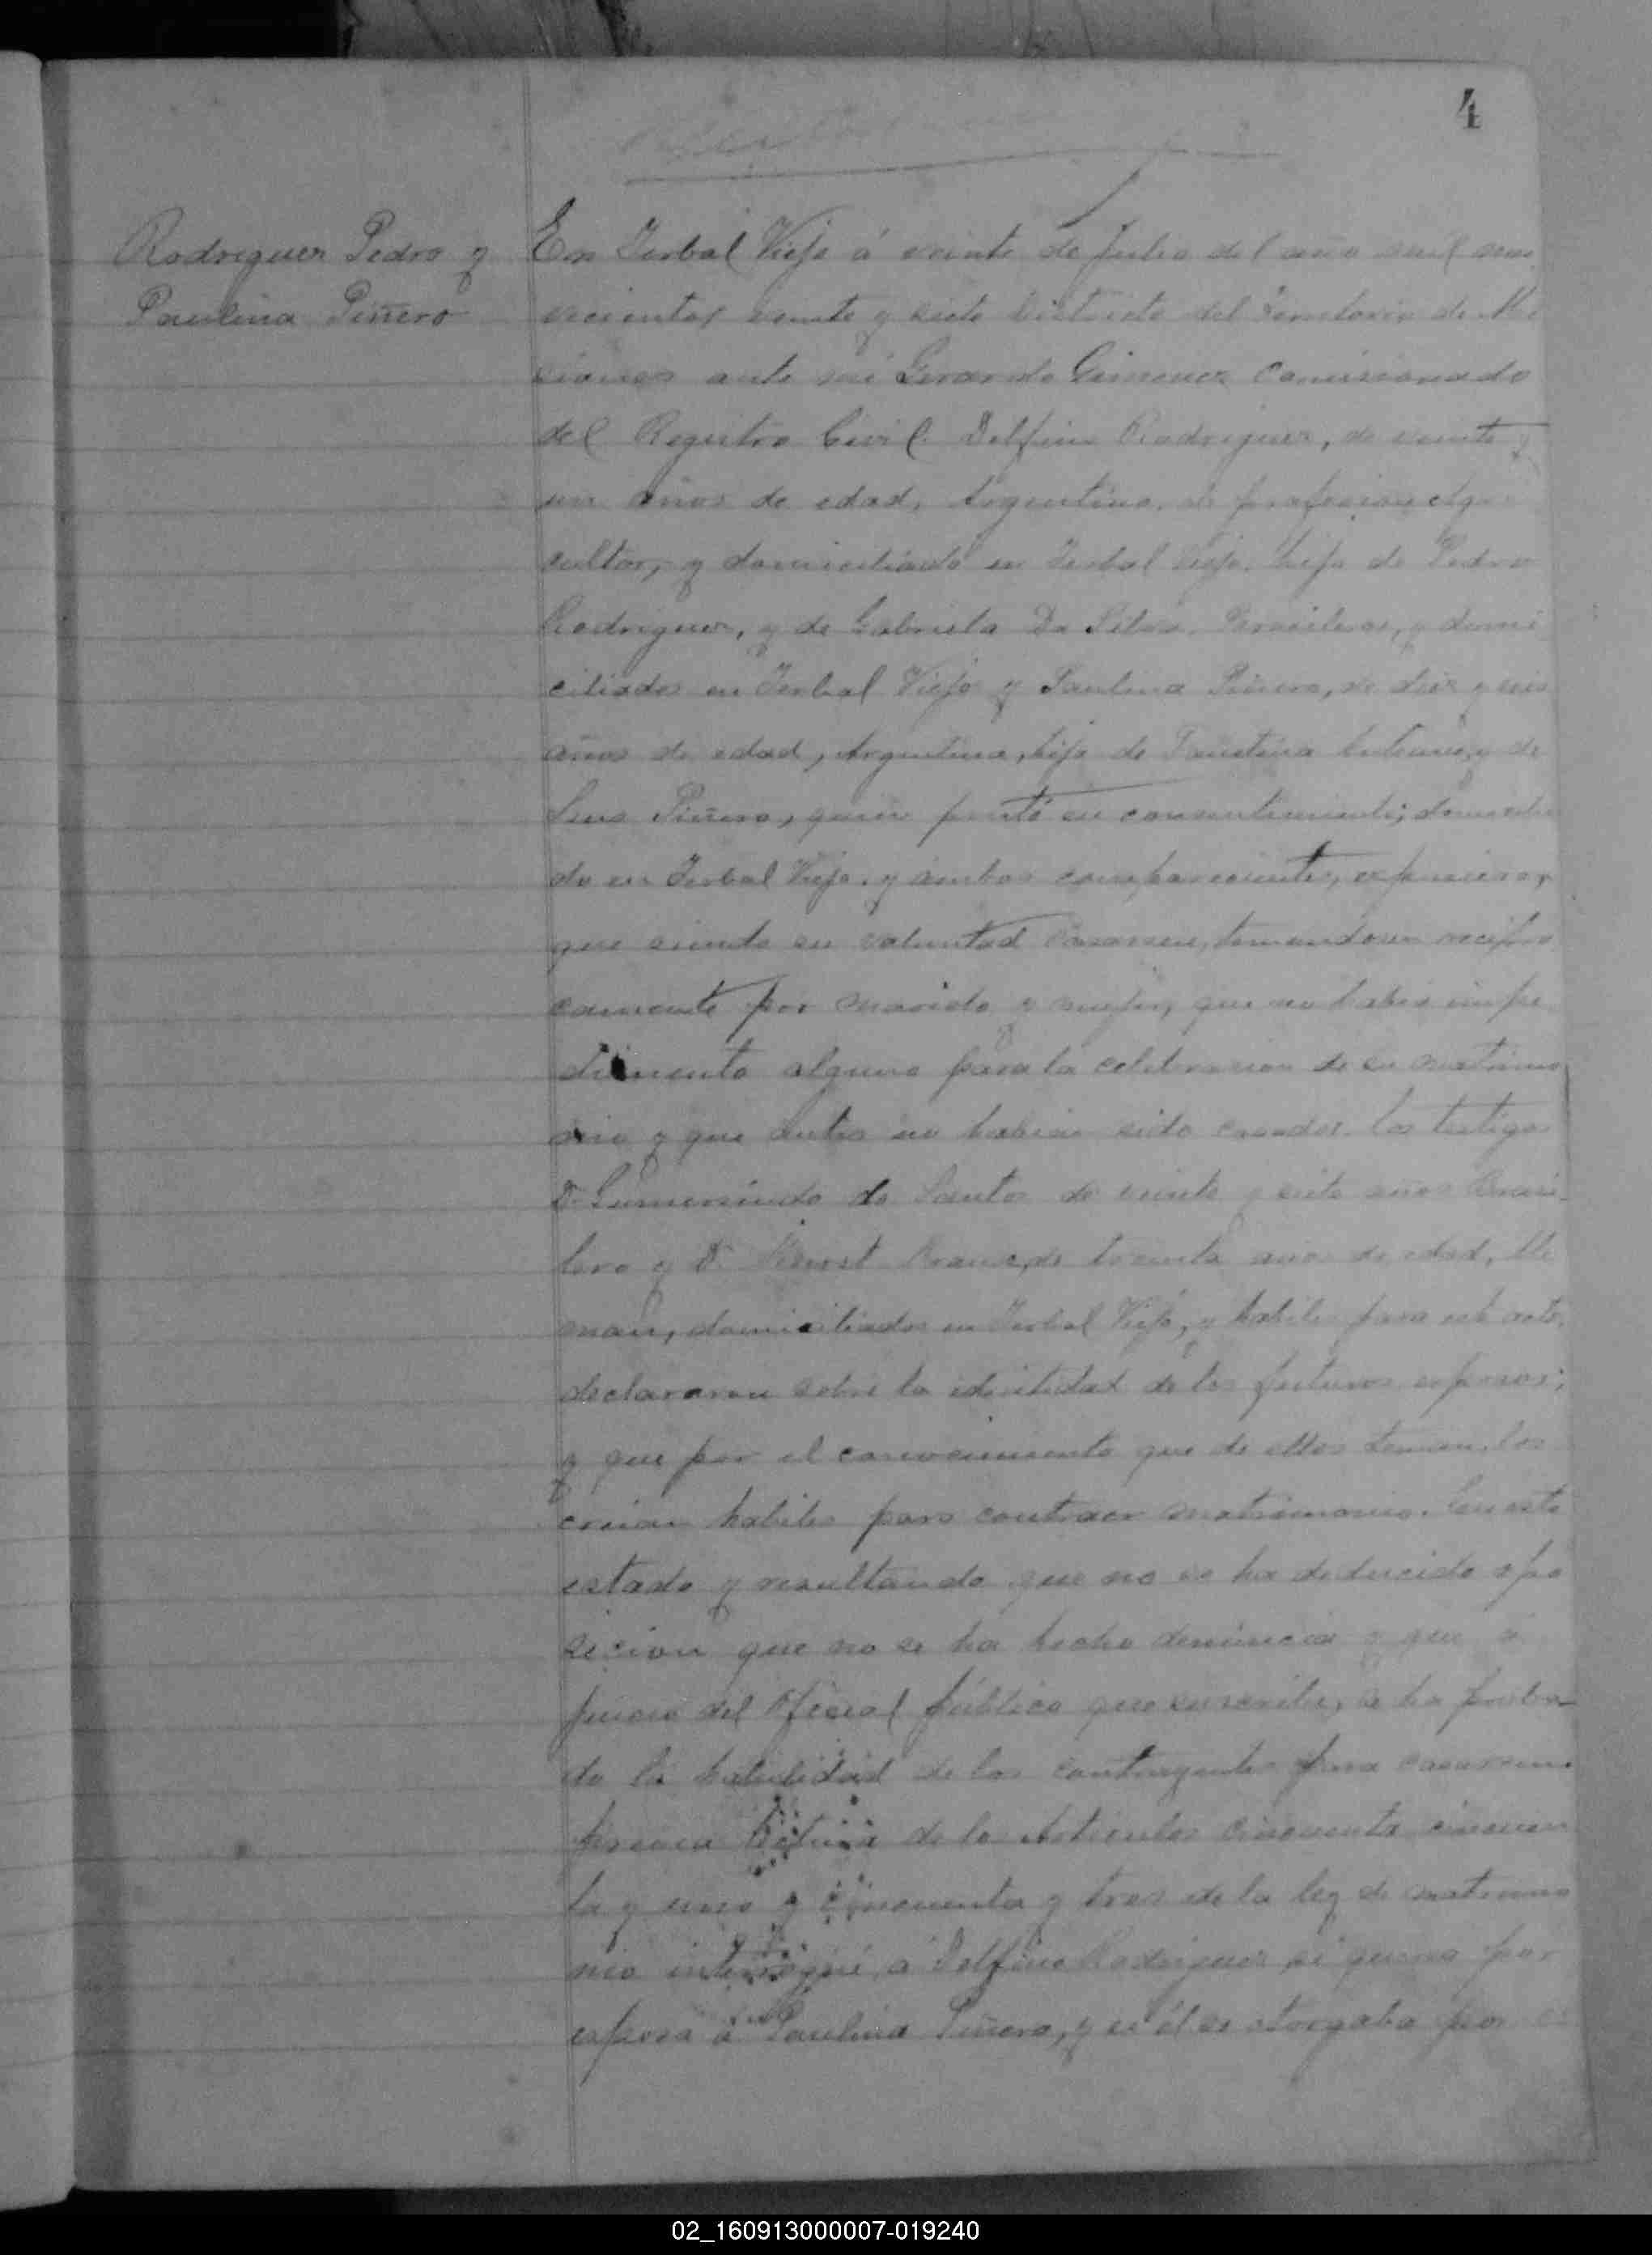 4
Rodriguez Pedro y
Paulina Piñero
En Yerbal Viejo á veinte de Julio del año mil nove
cientos veinte y siete Districto del Territorio de Mi
ciones ante mi Gerardo Gimenez Comisionado
del Registro Civil Delfino Rodriguez, de veinte y
un años de edad, Argentino, de profesion Agri
cultor, y domiciliado en Yerbal Viejo, hijo de Pedro
Rodriguez, y de Gabriela Da Silva, Brasileros, y domi
ciliados en Yerbal Viejo y Paulina Piñero, de diez y seis
años de edad, Argentina, hija de Faustina y de
Piñero, quien prestó su consentimiento; domicilia
do en Yerbal Viejo, y ambos comparecientes, expusieron
que siendo su voluntad Casarse, tomandose recipro
camente por marido y mujer, que no habia impe
dimento alguno para la celebracion de su matrimo
nio y que antes no habian sido casados. los testigos
D. Gumersindo do Santos de veinte y siete años Brasi-
lero y D. de treinta años de edad, Ale
man, domiciliados en Yerbal Viejo, y habiles para este acto,
declararon sobre la identidad de los futuros esposos;
y que por el conocimiento que de ellos tienen, los
creian habiles para contraer matrimonio. En este
estado y resultando que no se ha deducido opo
sicion que no se ha hecho denuncia y que á
juicio del Oficial público que suscribe, se ha proba-
do la habilidad de los contrayentes para casarse
previa lectura de los Articulos cincuenta cincuen
ta y uno y cincuenta y tres de la ley de matrimo
nio interrogué á Delfino Rodriguez si queria por
esposa á Paulina Piñero, y si él se otorgaba por
02_160913000007-019240